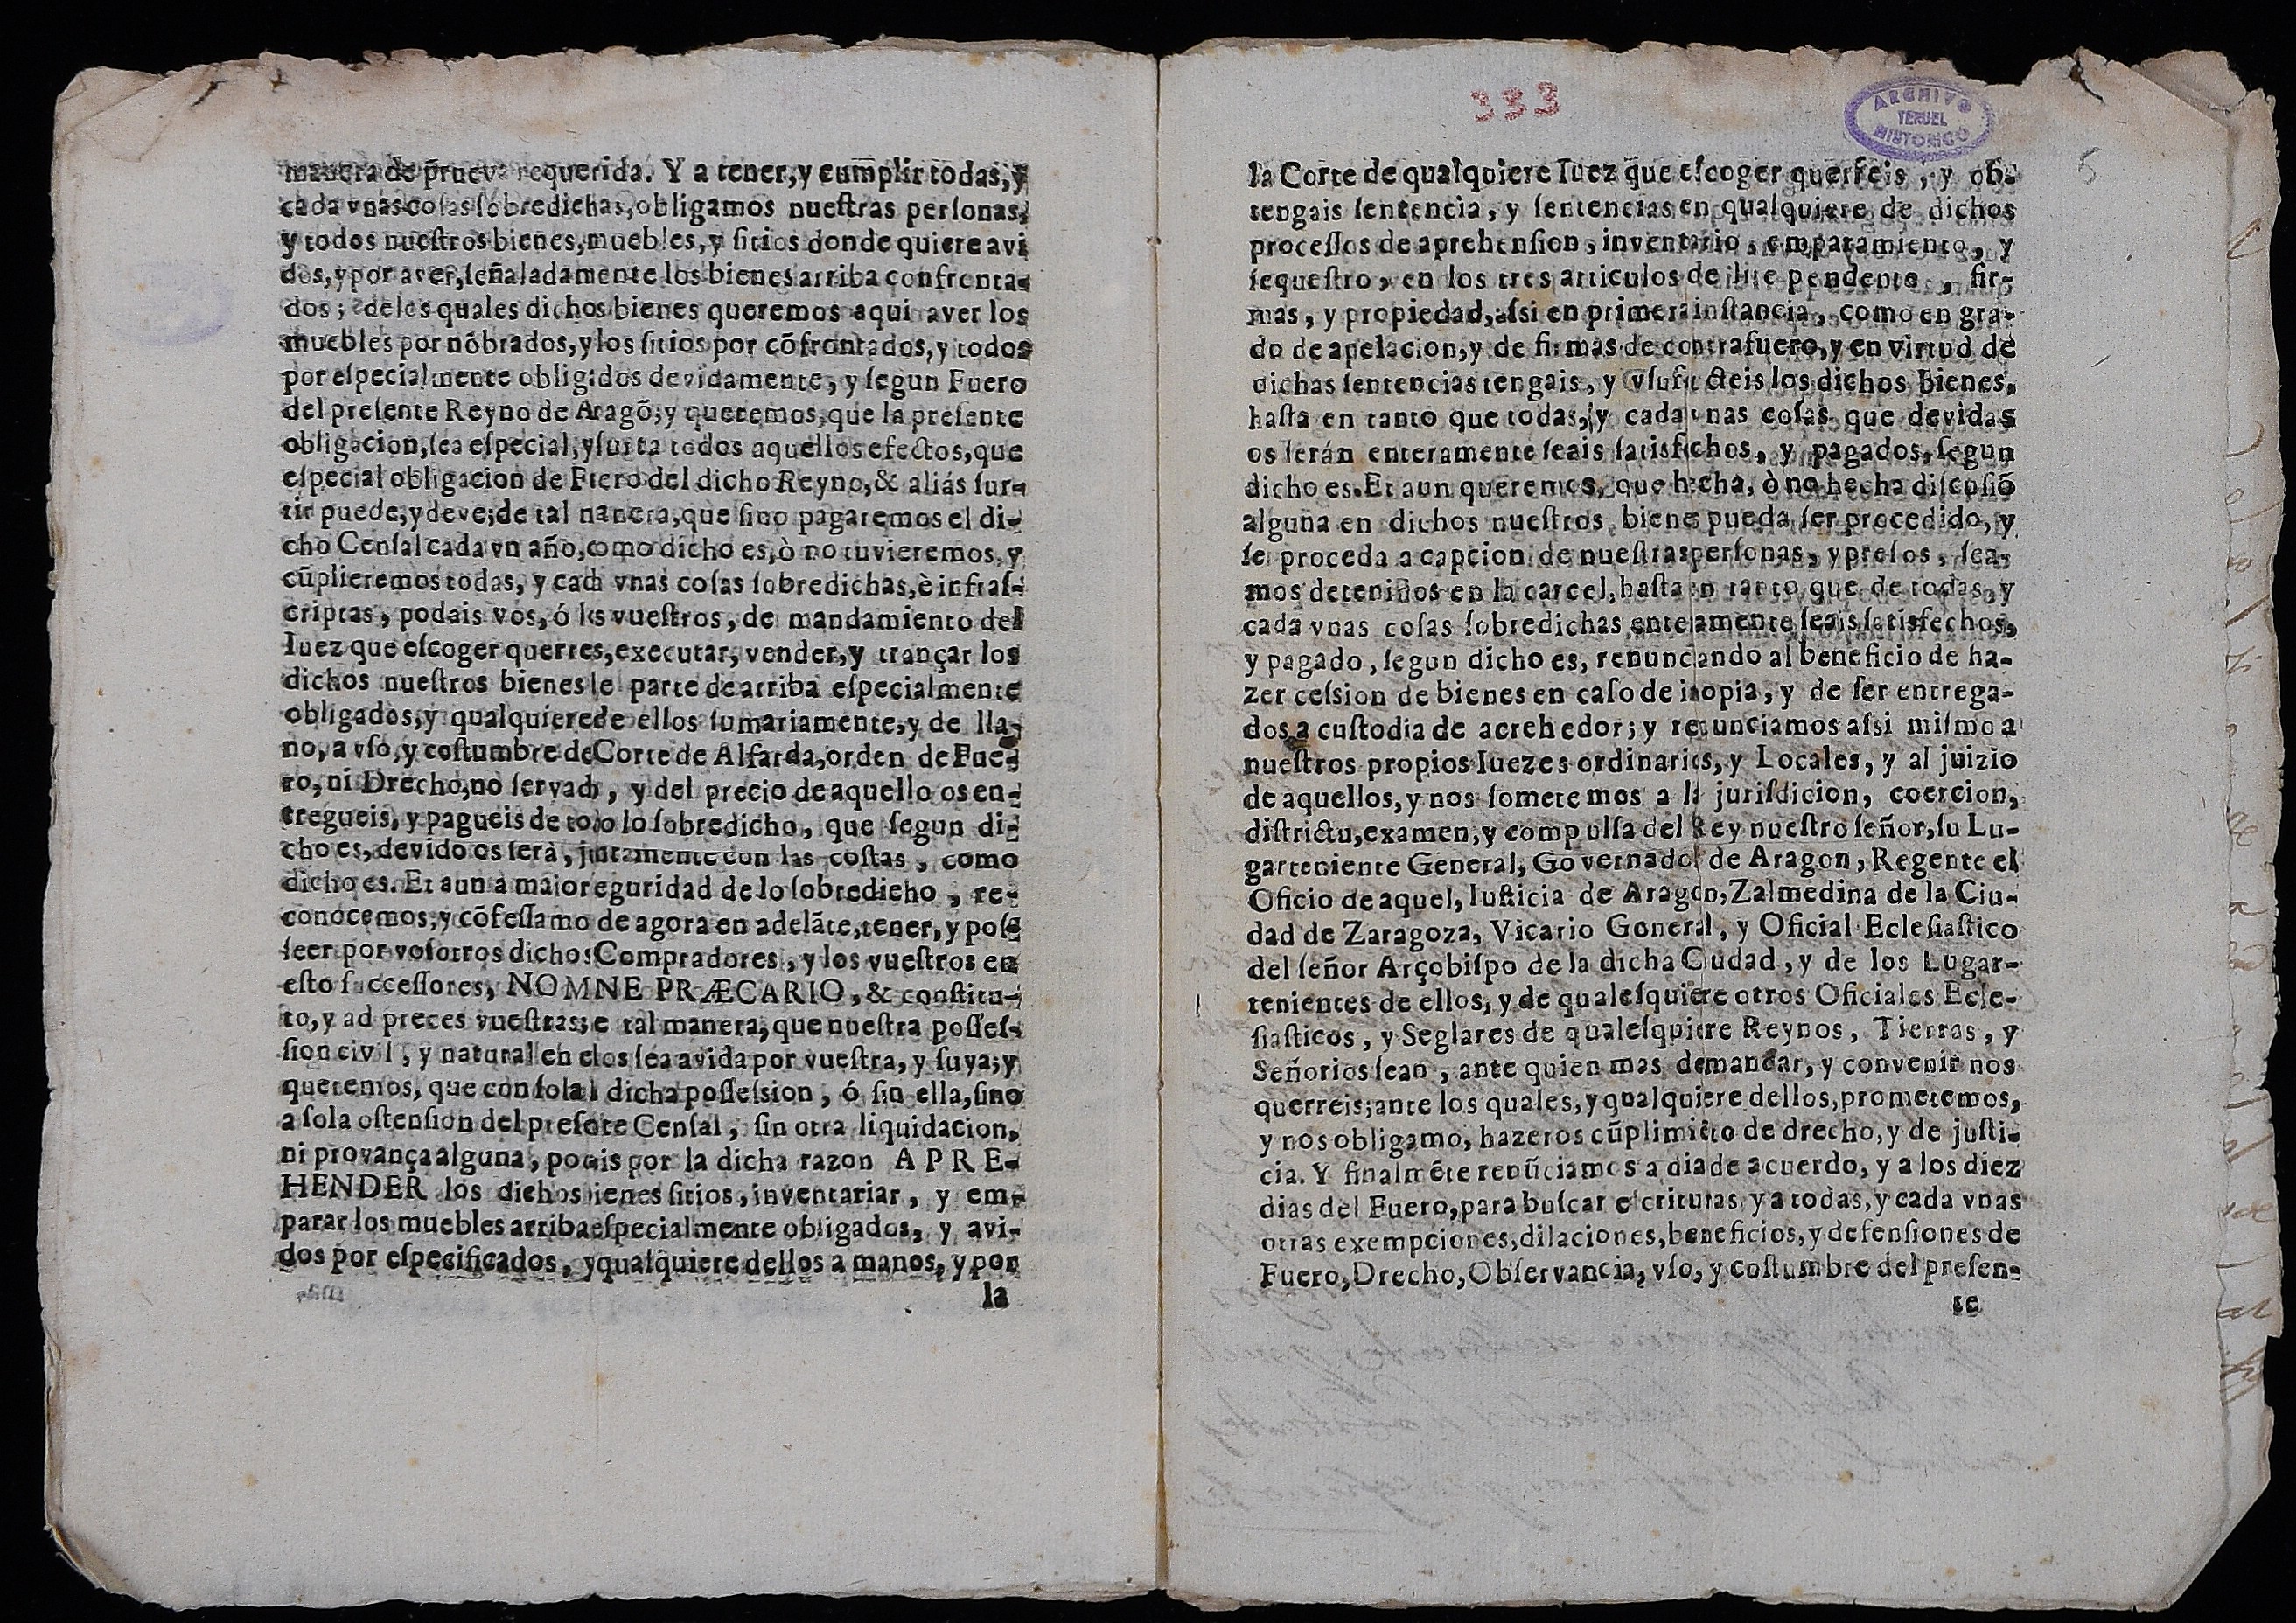 manera de prueva requerida. Y a tener, y cumplir todas, y
cada vnas cosas sobredichas, obligamos nuestras personas,
y todos nuestros bienes, muebles, y sitios donde quiere avi
dos, y por aver, señaladamente los bienes arriba confronta-
dos; de los quales dichos bienes queremos aqui aver los
muebles por nõbrados, y los sitios por cõfrontados, y todos
por especialmente obligados devidamente, y segun Fuero
del presente Reyno de Aragõ; y queremos, que la presente
obligacion, sea especial, y surta todos aquellos efectos, que
especial obligacion de Fuero del dicho Reyno, & aliás sur-
tir puede, y deve; de tal manera, que sino pagaremos el di-
cho Censal cada vn año, como dicho es, ò no tuvieremos, y
cũplieremos todas, y cada vnas cosas sobredichas, è infras-
criptas, podais vos, ó los vuestros, de mandamiento del
Iuez que escoger querres, executar, vender, y trançar los
dichos nuestros bienes de parte de arriba especialmente
obligados, y qualquiere de ellos sumariamente, y de lla-
no, a vso, y costumbre de Corte de Alfarda, orden de Fue-
ro, ni Drecho, no servado, y del precio de aquello os en-
tregueis, y pagueis de todo lo sobredicho, que segun di-
cho es, devido os serà, juntamente con las costas, como
dicho es. Et aun a maior seguridad de lo sobredicho, re-
conocemos, y cõfessamos de agora en adelãte, tener, y pos-
seer por vosotros dichos Compradores, y los vuestros en
esto successores, NOMNE PRÆCARIO, & constitu-
to, y ad preces vuestras; de tal manera, que nuestra posses-
sion civil, y natural en ellos sea avida por vuestra, y suya; y
queremos, que con sola la dicha possession, ó sin ella, sino
a sola ostension del presente Censal, sin otra liquidacion,
ni provança alguna, podais por la dicha razon APRE-
HENDER los dichos bienes sitios, inventariar, y em-
parar los muebles arriba especialmente obligados, y avi-
dos por especificados, y qualquiere dellos a manos, y por
la
333
ARCHIVO
TERUEL
HISTORICO
5
la Corte de qualquiere Iuez que escoger querreis, y ob-
tengais sentencia, y sentencias en qualquiere de dichos
processos de aprehension, inventario, emparamiento, y
sequestro, en los tres articulos de lite pendente, fir-
mas, y propiedad, assi en primera instancia, como en gra-
do de apelacion, y de firmas de contrafuero, y en virtud de
dichas sentencias tengais, y vsufructeis los dichos bienes,
hasta en tanto que todas, y cada vnas cosas que devidas
os serán enteramente seais satisfechos, y pagados, segun
dicho es. Et aun queremos, que hecha, ò no hecha discusiõ
alguna en dichos nuestros bienes pueda ser procedido, y
se proceda a capcion de nuestras personas, y presos, sea-
mos detenidos en la carcel, hasta en tanto que de todas, y
cada vnas cosas sobredichas enteramente seais satisfechos,
y pagado, segun dicho es, renunciando al beneficio de ha-
zer cession de bienes en caso de inopia, y de ser entrega-
dos a custodia de acrehedor; y renunciamos assi mismo a
nuestros propios Iuezes ordinarios, y Locales, y al juizio
de aquellos, y nos sometemos a la jurisdicion, coercion,
districtu, examen, y compulsa del Rey nuestro señor, su Lu-
garteniente General, Governador de Aragon, Regente el
Oficio de aquel, Iusticia de Aragon, Zalmedina de la Ciu-
dad de Zaragoza, Vicario Goneral, y Oficial Eclesiastico
del señor Arçobispo de la dicha Ciudad, y de los Lugar-
tenientes de ellos, y de qualesquiere otros Oficiales Ecle-
siasticos, y Seglares de qualesquiere Reynos, Tierras, y
Señorios sean, ante quien mas demandar, y convenir nos
querreis; ante los quales, y qualquiere dellos, prometemos,
y nos obligamo, hazeros cũplimiẽto de drecho, y de justi-
cia. Y finalmẽte renũciamos a dia de acuerdo, y a los diez
dias del Fuero, para buscar escrituras y a todas, y cada vnas
otras exempciones, dilaciones, beneficios, y defensiones de
Fuero, Drecho, Observancia, vso, y costumbre del presen-
te